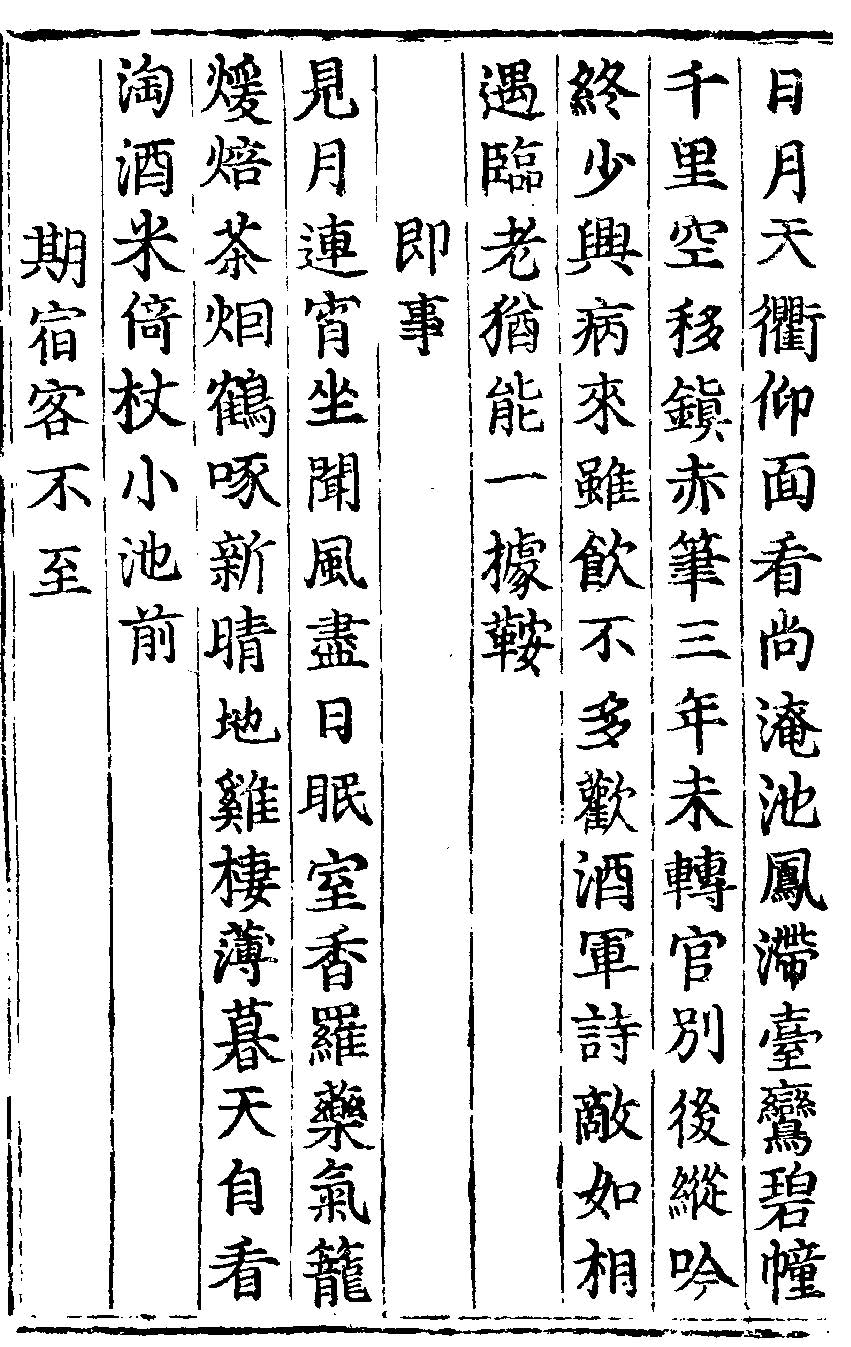 日月天衢仰面看尚淹池鳳滯臺鸞碧幢
千里空移鎮赤筆三年未轉官別後縱吟
終少興病來雖飲不多歡酒軍詩敵如相
遇臨老猶能一據鞍
即事
見月連宵坐聞風盡日眠室香羅藥氣籠
煖焙茶烟鶴啄新晴地雞棲薄暮天自看
淘酒米倚杖小池前
期宿客不至